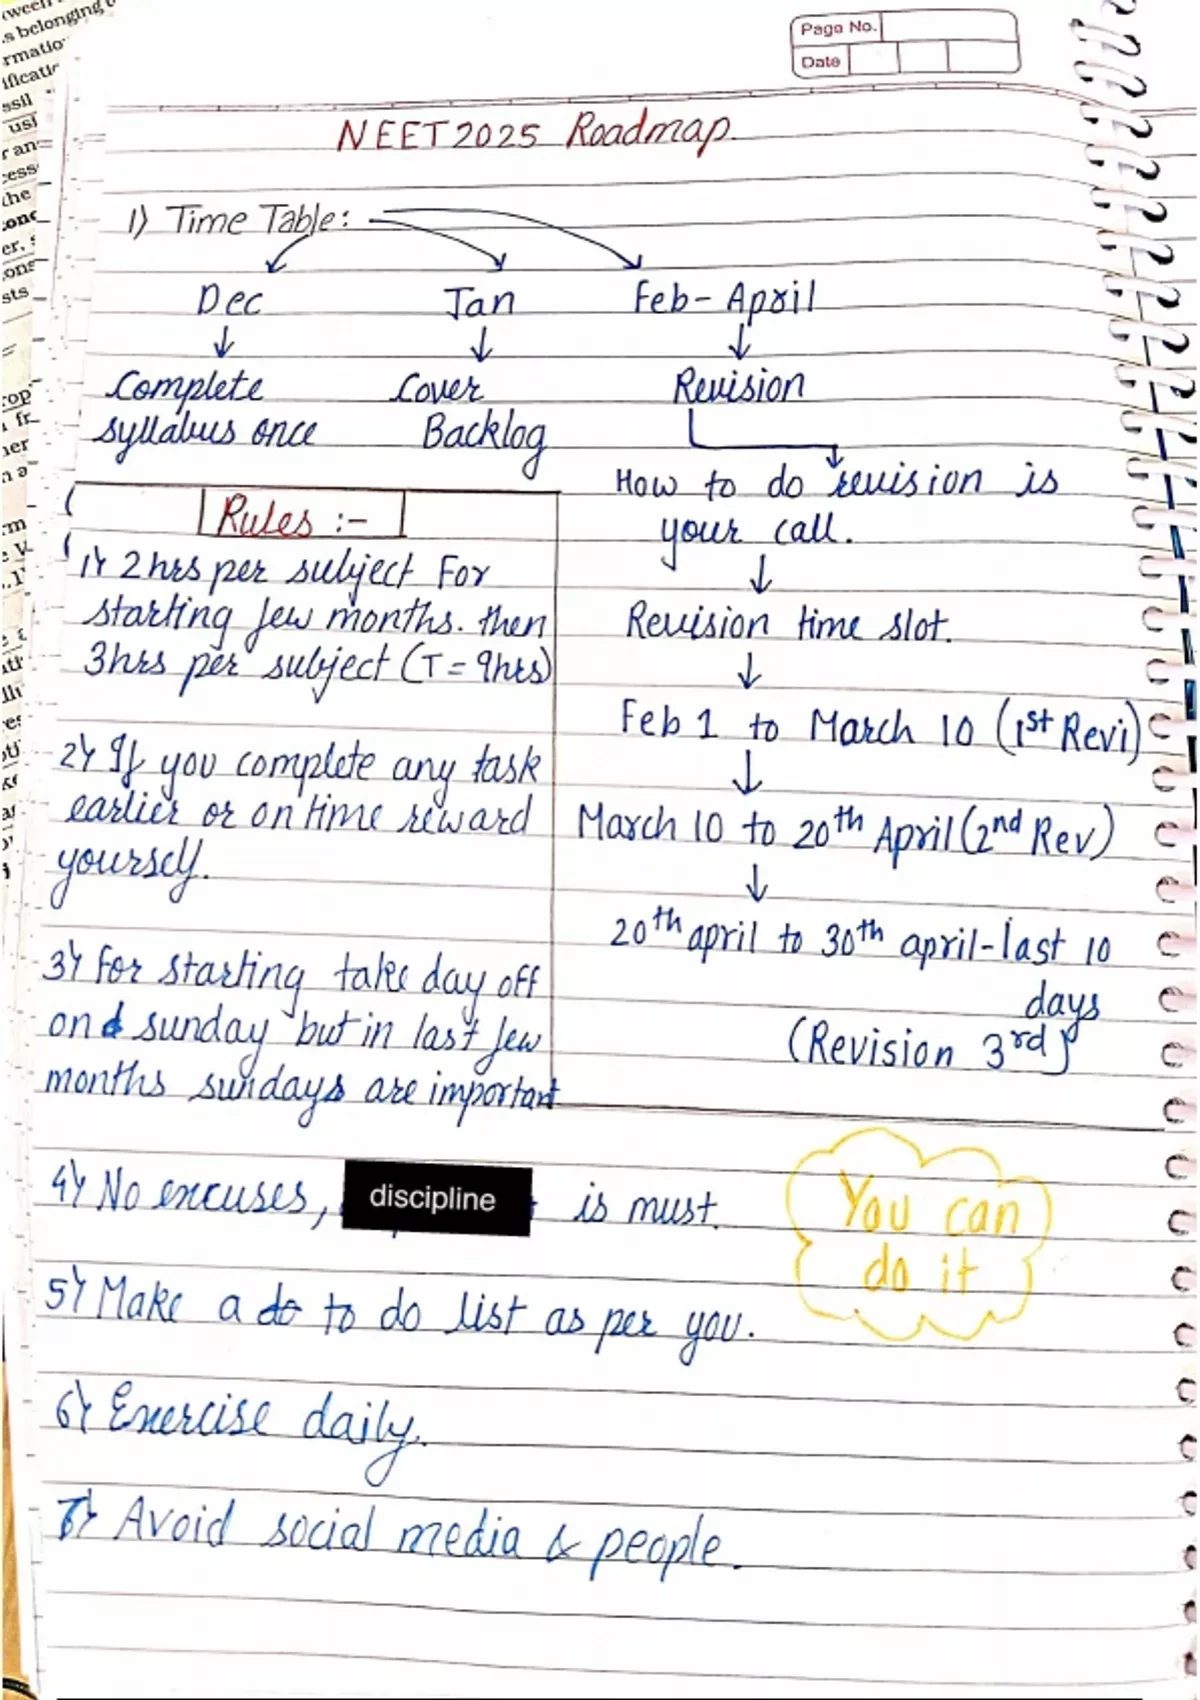 Page No.
Date
NEET 2025 Roadmap.
1) Time Table:
Dec
Jan
Feb - April
Complete
syllabus once
Cover
Backlog
Revision
How to do revision is
your call.
Revision time slot.
Feb 1 to March 10 (1st Revi)
March 10 to 20th April (2nd Rev)
20th april to 30th april - last 10
days
(Revision 3rd)
Rules :-
1) 2 hrs per subject For
starting few months. then
3hrs per subject (T = 9hrs)
2) If you complete any task
earlier or on time reward
yourself.
3) For starting take day off
on sunday but in last few
months sundays are important
4) No excuses, discipline is must.
5) Make a do to do list as per you.
6) Exercise daily.
7) Avoid social media & people.
You can
do it